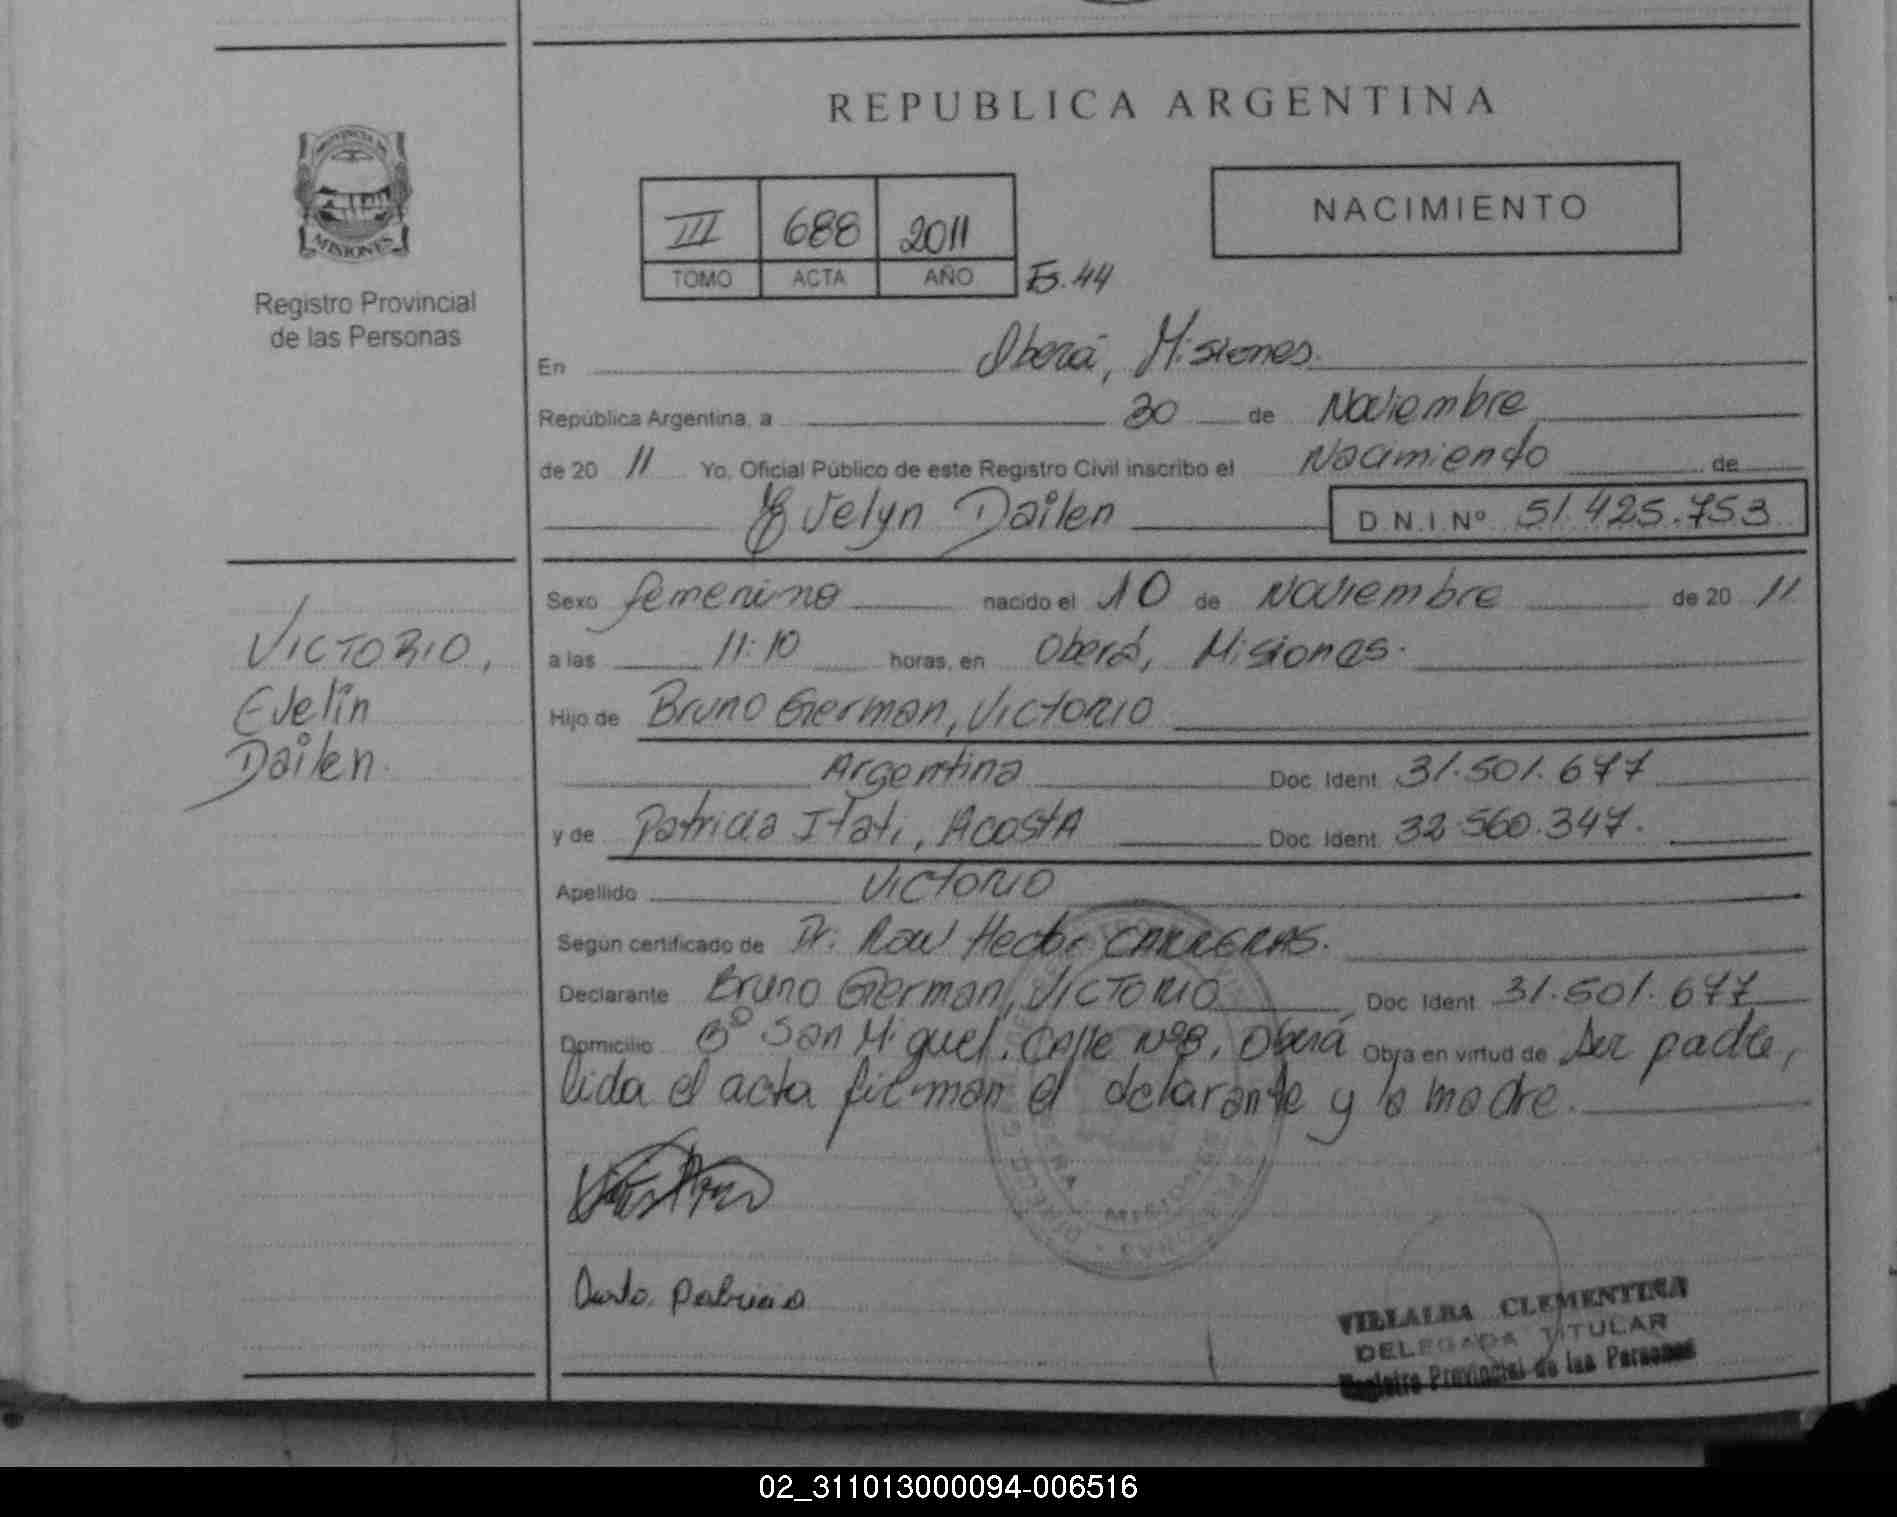 REPUBLICA ARGENTINA
PROVINCIA DE
MISIONES
Registro Provincial
de las Personas
III 688 2011
TOMO ACTA AÑO
NACIMIENTO
En Oberá, Misiones.
República Argentina, a 30 de Noviembre
de 20 11 Yo, Oficial Público de este Registro Civil inscribo el Nacimiento de
Evelyn Dailen D.N.I.Nº 51.425.753
VICTORIO,
Evelin
Dailen.
Sexo femenino nacido el 10 de Noviembre de 20 11
a las 11:10 horas, en Oberá, Misiones.
Hijo de Bruno German, VICTORIO
Argentina Doc. Ident. 31.501.677
y de Patricia Itati, ACOSTA Doc. Ident. 32.560.347.
Apellido VICTORIO
Según certificado de Dr. Raul Hector CARRERAS.
Declarante Bruno German, VICTORIO, Doc. Ident. 31.501.677
Domicilio Bº San Miguel, Calle Nº8, Oberá Obra en virtud de ser padre,
lida el acta firman el delarante y la madre.
MISIONES
VILLALBA CLEMENTINA
DELEGADA TITULAR
Registro Provincial de las Personas
02_311013000094-006516